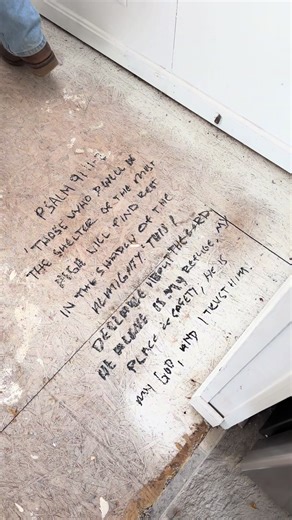 PSALM 91:1-2
'THOSE WHO DWELL IN
THE SHELTER OF THE MOST
HIGH WILL FIND REST
IN THE SHADOW OF THE
ALMIGHTY. THIS I
DECLARE ABOUT THE LORD
HE ALONE IS MY REFUGE, MY
PLACE OF SAFETY, HE IS
MY GOD, AND I TRUST HIM.